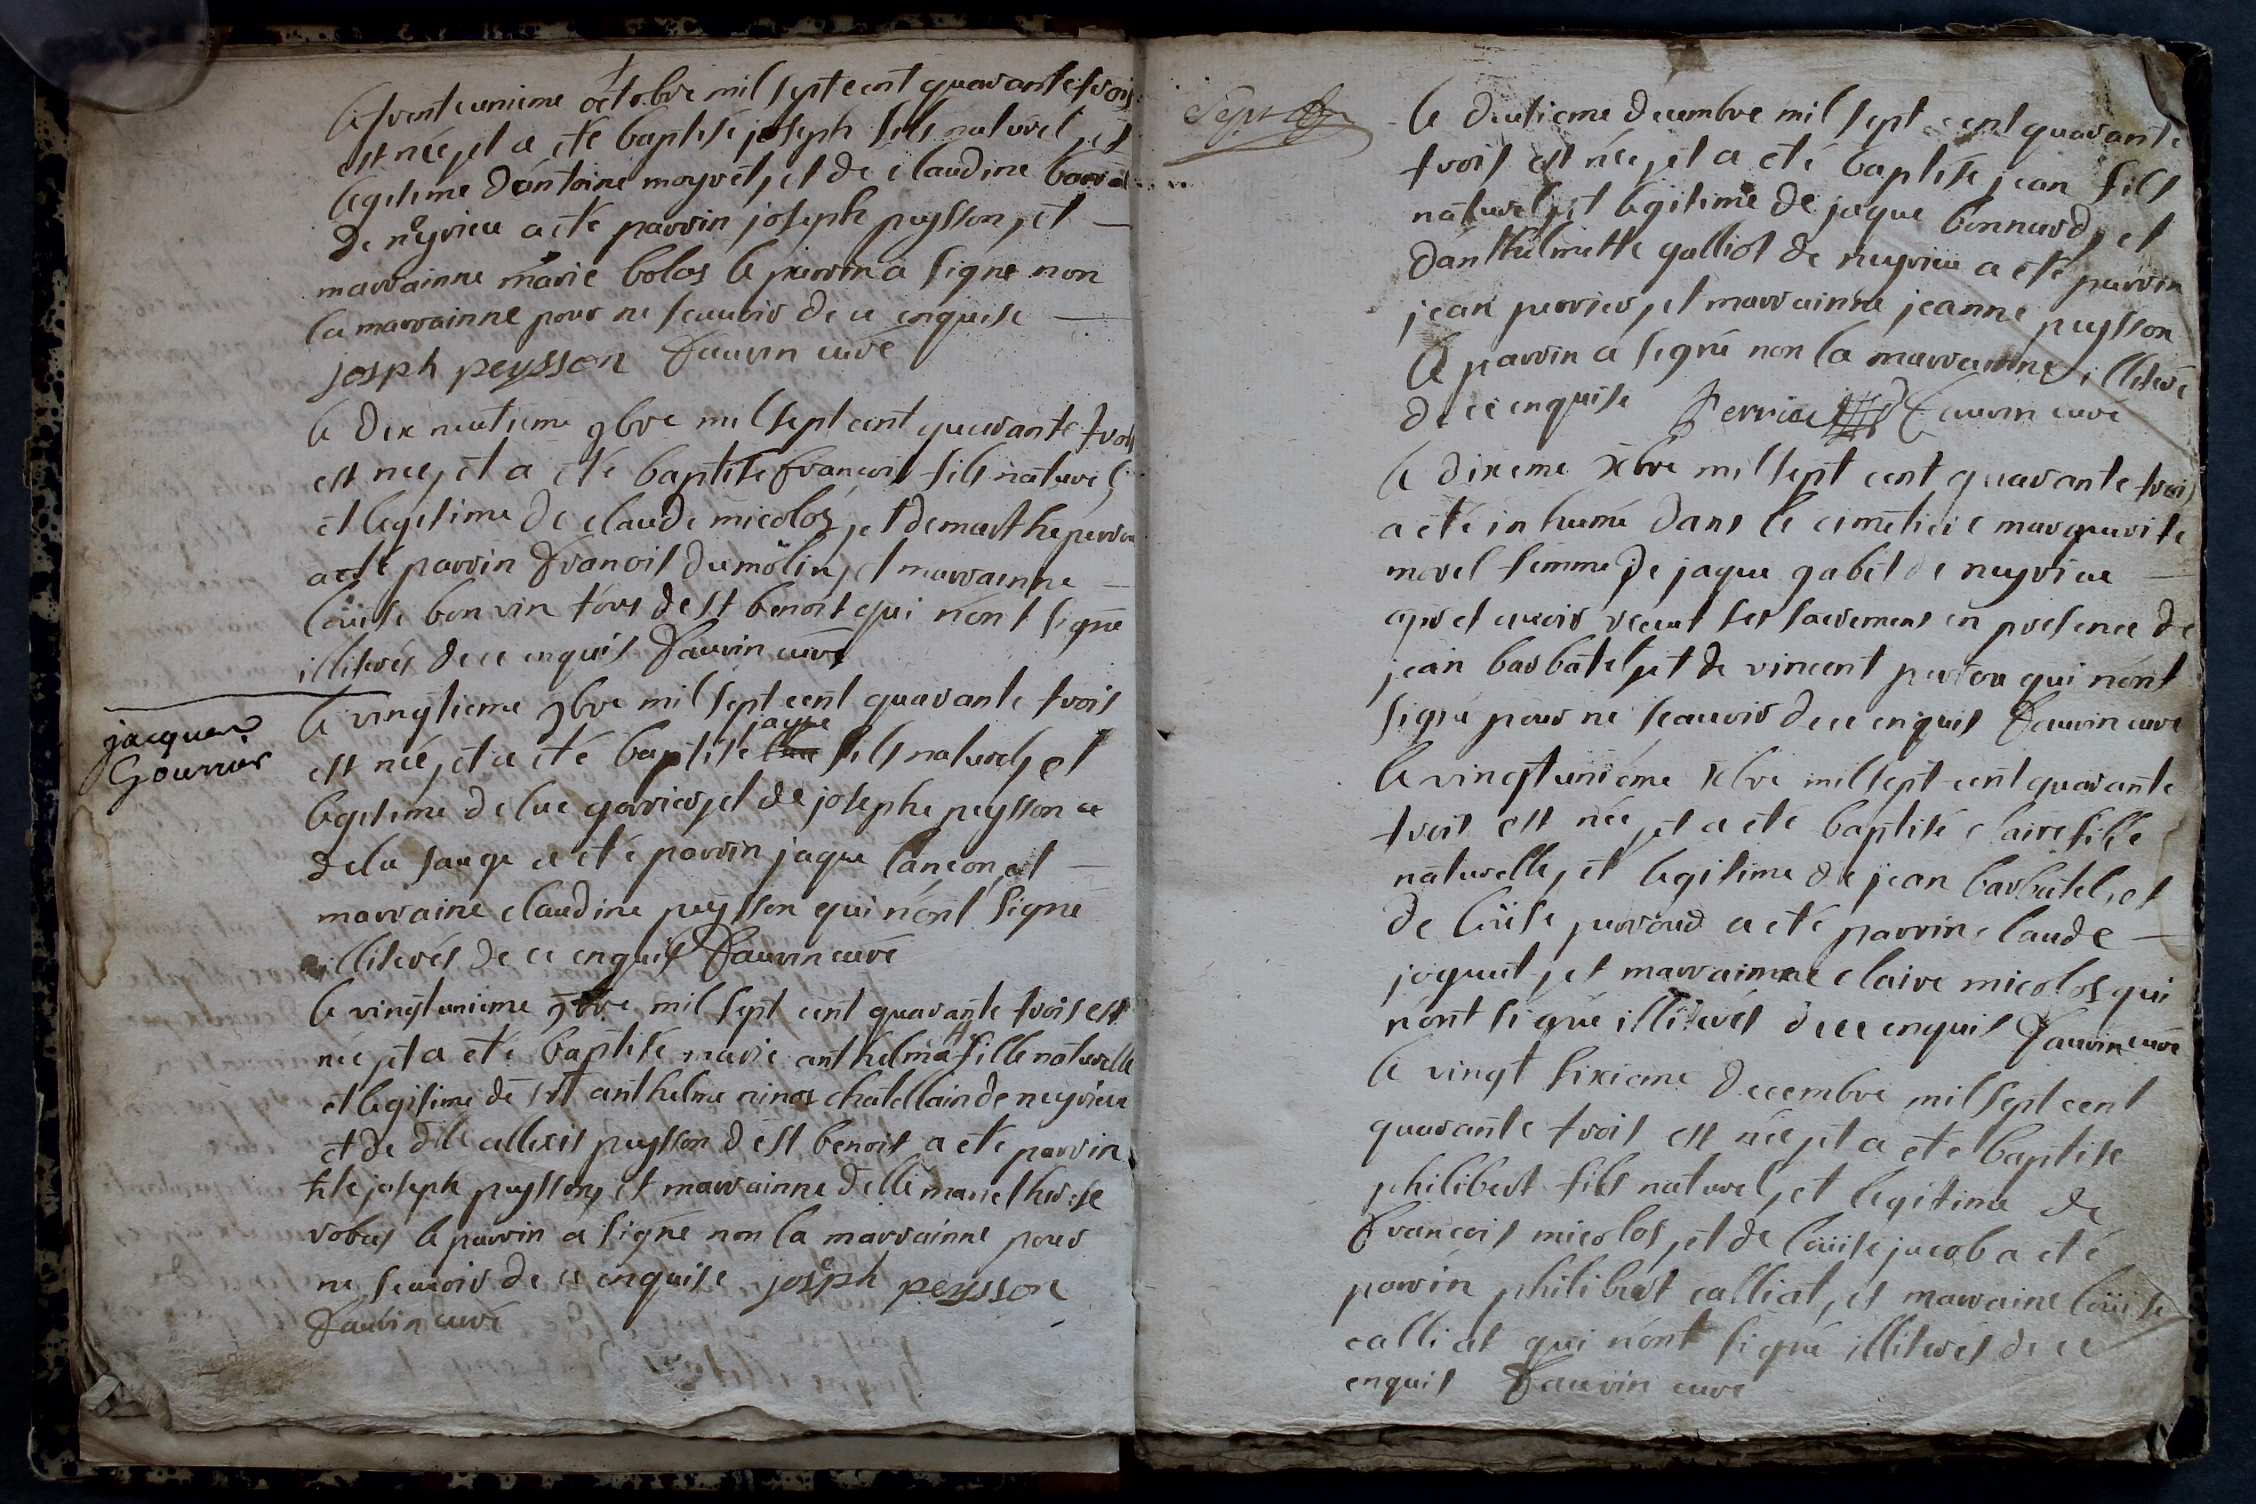 le trente unieme octobre mil sept cent quarante trois
est née, et a eté baptisé joseph fils naturel, et
legitime d'antoine moyret, et de claudine
de neyrieu a eté parrin joseph peysson, et
marrainne marie bolas le parrin a signe non
la marrainne pour ne scauoir de ce enquise
joseph peysson curé
le dix neutieme 9bre mil sept cent quarante trois
est nee, et a eté baptise francois fils naturel,
et legitime de claude micolos, et de marthe
a eté parrin francois dumolin, et marrainne
louise bonvin tous de st benoit qui n'ont signe
illiterés de ce enquis curé
jacques
Gourrier
le vingtieme 9bre mil sept cent quarante trois
est neé, et a eté baptisé jaque fils naturel, et
legitime de luc et de josephe peysson a
de la sauge a eté parrin jaque lancon, et
marraine claudine peysson qui n'ont signe
illiterés de ce enquis curé
le vingt unieme 9bre mil sept cent quarante trois est
née, et a eté baptisée marie anthelme fille naturelle
et legitime de sr anthelme ninos chatellain de neyrieu
et de dlle peysson de st benoit a eté parrin
joseph peysson, et marrainne delle marie therese
robus le parrin a signé non la marrainne pour
ne scauoir de ce enquise joseph peysson
curé
Sept
le deutieme decembre mil sept cent quarante
trois est née, et a eté baptisé jean fils
naturel, et legitime de jaque bonnard, et
d'anthelmette galliot de neyrieu a eté parrin
jean perrier, et marrainne jeanne peysson
le parrin a signé non la marrainne illiteré
de ce enquise Perrier curé
le dixieme xbre mil sept cent quarante trois
a eté inhumé dans le cimetiere marguerite
morel femme de jaque gabet de neyrieu
apres auoir receut ses sacrements en presence de
jean barbatel, et de vincent qui n'ont
signé pour ne scauoir de ce enquis curé
le vingt unieme xbre mil sept cent quarante
trois est née, et a eté baptisé claire fille
naturelle, et legitime de jean barbatel, et
de louise perroud a eté parrin claude
joquet, et marrainne claire micolos qui
n'ont signé illiterés de ce enquis curé
le vingt sixieme decembre mil sept cent
quarante trois est née, et a eté baptise
philibert fils naturel, et legitime de
francois micolos, et de louise jacob a eté
parrin philibert calliat, et marraine louise
calliat qui n'ont signé illiterés de ce
enquis curé